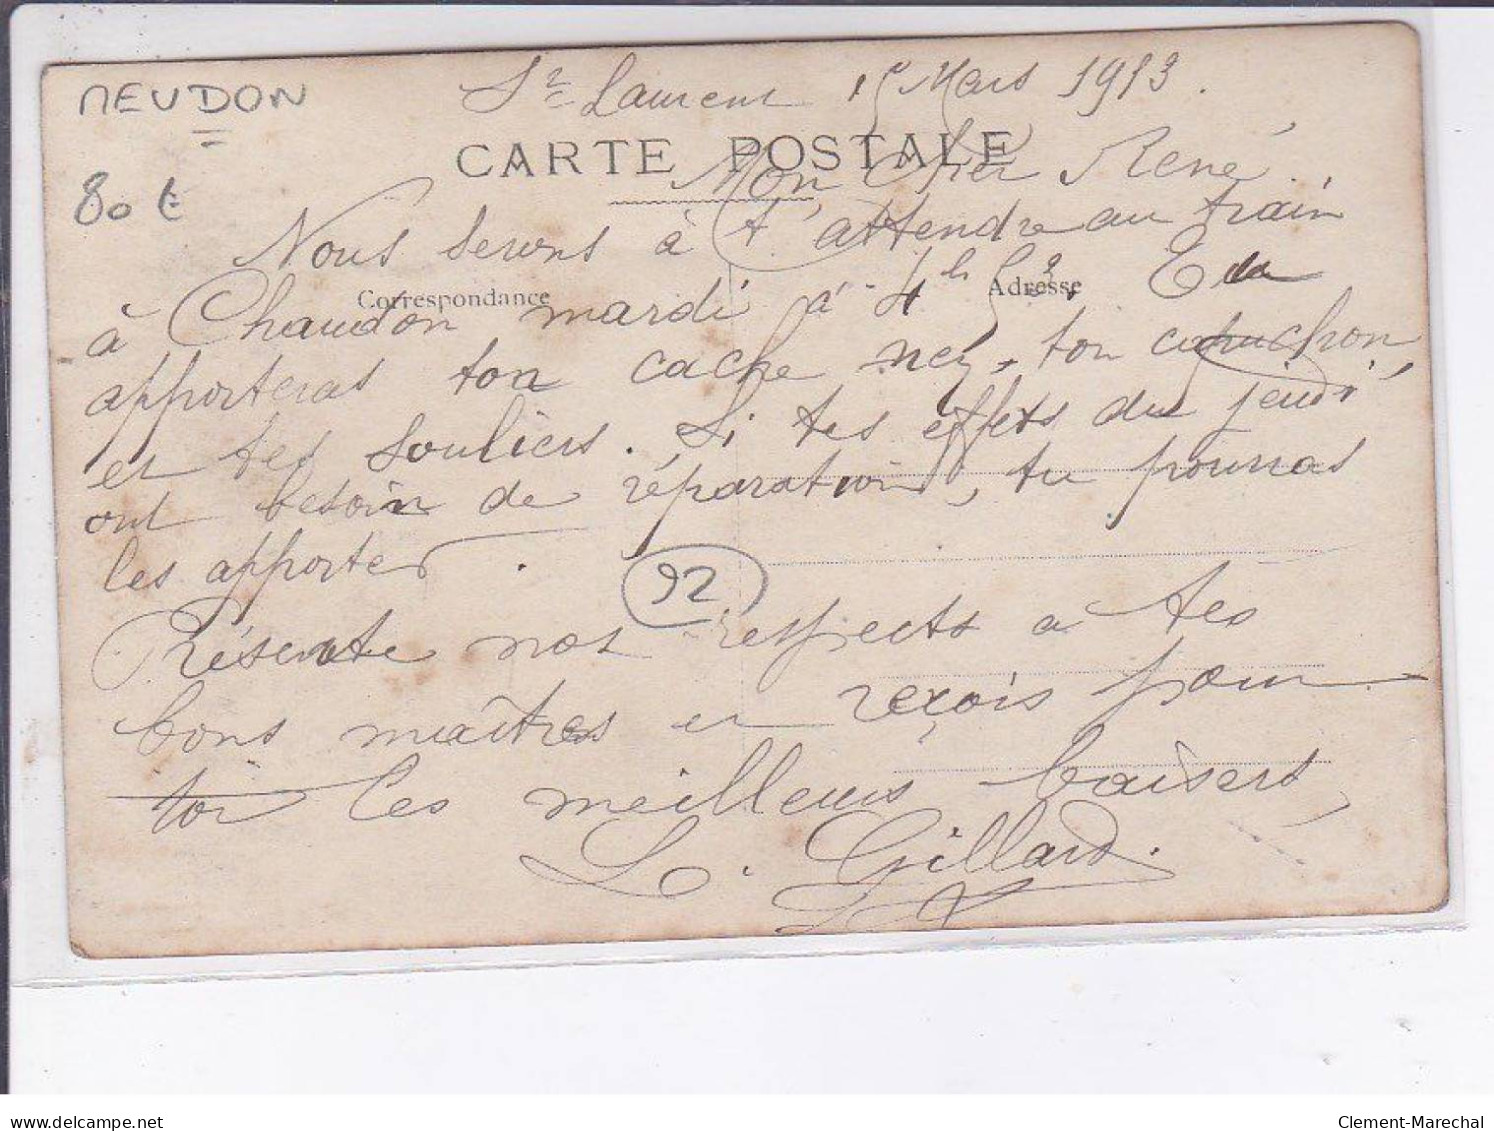 MEUDON
80 €
St Laurent 15 Mars 1913.
CARTE POSTALE
Mon Cher René.
Nous serons à t'attendre au train
Correspondance
Adresse
à Chaudon mardi à 4h 59. Tu
apporteras ton cache nez, ton capuchon,
et tes souliers. Si tes effets du jeudi
ont besoin de réparation, tu pourras
les apporter.
92
Présente nos respects à tes
bons maîtres et reçois pour
toi les meilleurs baisers,
L. Gillard.
delcampe.net
Clement-Marechal